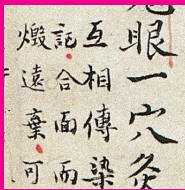 眼一穴灸
互相傳染
記合面而
燬遠棄可